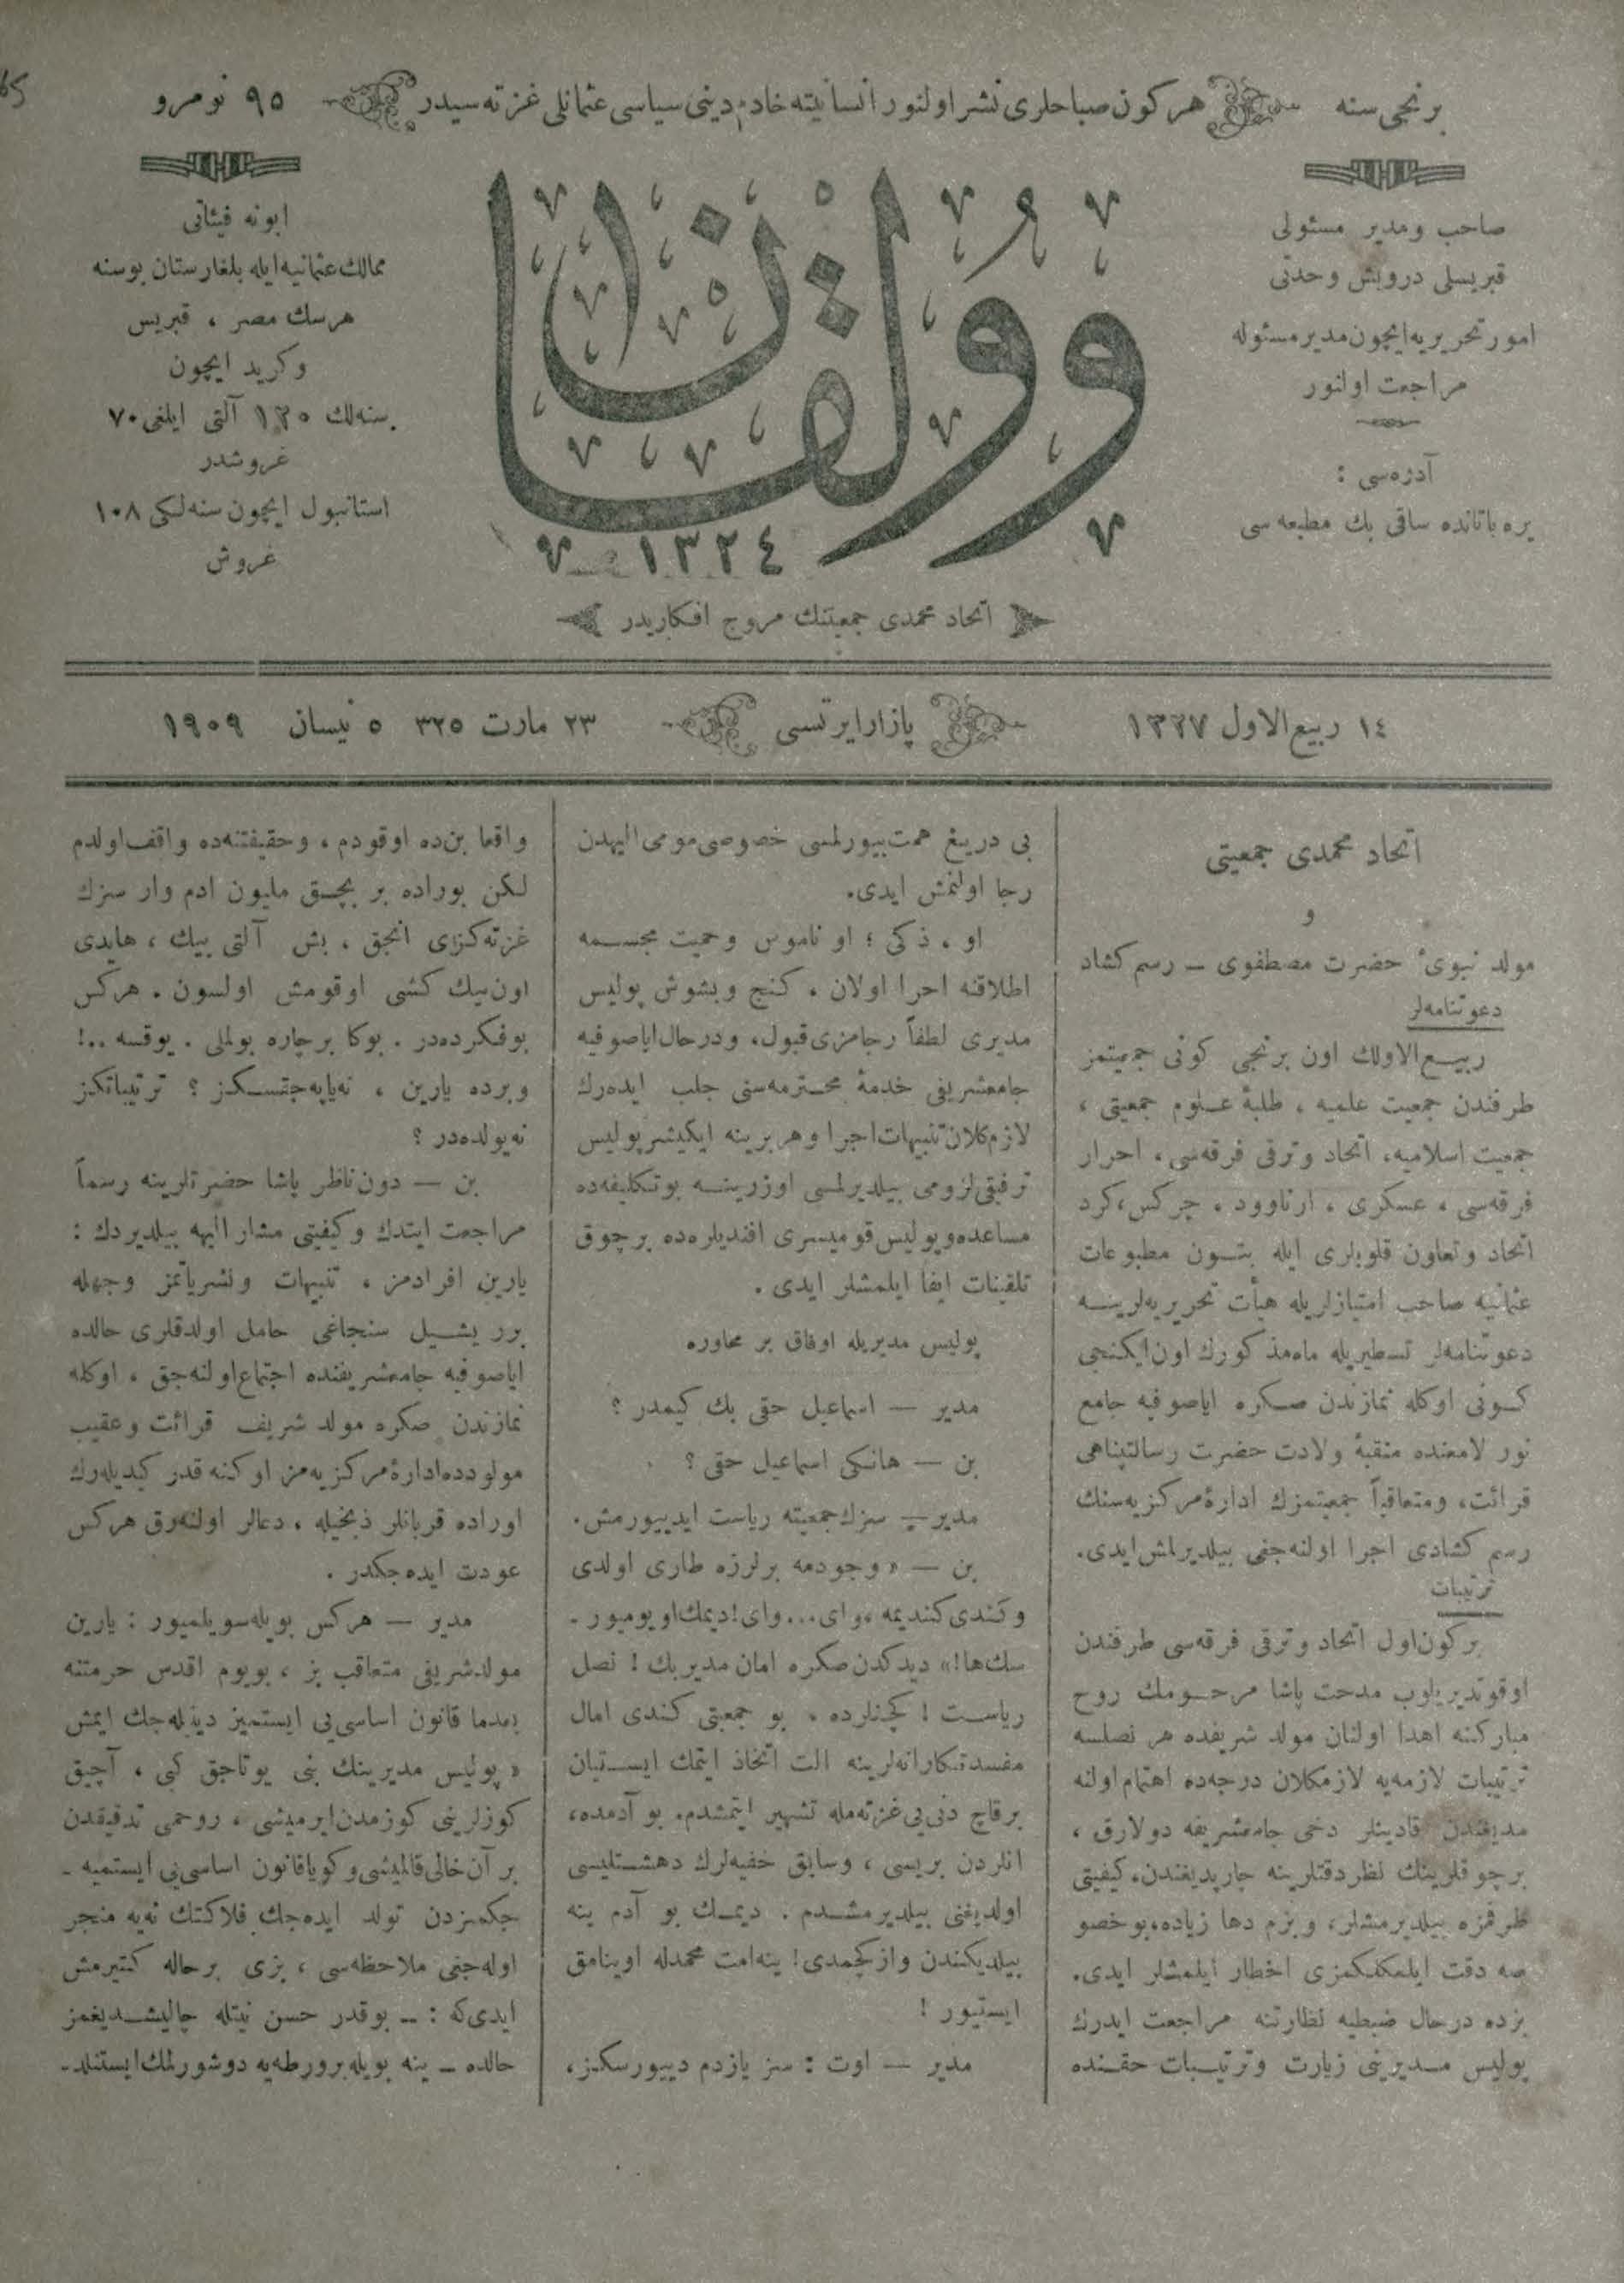 برنجی سنه
هر كون صباحلری نشر اولنور انسانیته خادم دینی سیاسی عثمانلی غزته سیدر
٩٥ نومرو
صاحب ومدیر مسئولی
قبریسلی درویش وحدتی
امور تحریریه ایچون مدیر مسئوله
مراجعت اولنور
آدرهسی :
یره باتانده ساقی بك مطبعه سی
وولقان
١٣٢٤
ابونه فیئاتی
ممالك عثمانیه ایله بلغارستان بوسنه
هرسك مصر ، قبریس
وكرید ایچون
سنه لك ١٢٥ آلتی ایلغی ٧٠
غروشدر
استانبول ایچون سنه لكی ١٠٨
غروش
اتحاد محمدی جمعیتنك مروج افكاریدر
١٤ ربیع الاول ١٣٢٧
پازار ایرتسی
٢٣ مارت ٣٢٥ ٥ نیسان ١٩٠٩
اتحاد محمدی جمعیتی
و
مولد نبویٔ حضرت مصطفوی ــ رسم كشاد
دعوتنامه لر
ربیــع الاولك اون برنجی كونی جمعیتمز
طرفندن جمعیت علمیه ، طلبۀ علــوم جمعیتی ،
جمعیت اسلامیه ، اتحاد وترقی فرقه سی ، احرار
فرقه سی ، عسكری ، ارناوود ، چركس ، كرد
اتحاد وتعاون قلوبلری ایله بتــون مطبوعات
عثمانیه صاحب امتیازلریله هیأت تحریریه لرینــه
دعوتنامه لر تسطیریله ماه مذكورك اون ایكنجی
كــونی اوكله نمازندن صــكره ایاصوفیه جامع
نور لامعنده منقبۀ ولادت حضرت رسالتپناهی
قرائت ، ومتعاقباً جمعیتمزك ادارۀ مركزیه سنك
رسم كشادی اجرا اولنه جغی بیلدیرلمش ایدی.
ترتیبات
بر كون اول اتحاد وترقی فرقه سی طرفندن
اوقوتدیریلوب مدحت پاشا مرحــومك روح
مباركنه اهدا اولنان مولد شریفده هر نصلسه
ترتیبات لازمه یه لازمكلان درجه ده اهتمام اولنه
مدیغندن قادینلر دخی جامعشریفه دولارق ،
برچوقلرینك نظر دقتلرینه چارپدیغندن، كیفیتی
طرفمزه بیلدیرمشلر، وبزم دها زیاده بو خصو
صه دقت ایلمكلكمزی اخطار ایلمشلر ایدی.
بزده درحال ضبطیه نظارتنه مراجعت ایدرك
پولیس مــدیرینی زیارت وترتیــبات حقنــده
بی دریغ همت بیورلمسی خصوصی مومی الیهدن
رجا اولنمش ایدی.
او ، ذكی ؛ او ناموس وحمیت مجســمه
اطلاقنه احرا اولان ، كنج وبشوش پولیس
مدیری لطفاً رجامزی قبول ، ودرحال ایاصوفیه
جامعشریفی خدمۀ محــترمه سنی جلب ایده رك
لازمكلان تنبیهات اجرا وهر برینه ایكیشر پولیس
ترفیقی لزومی بیلدیرلمسی اوزرینــه بوتكلیفه ده
مساعده وپولیس قومیسری افندیلره ده بر چوق
تلقینات ایفا ایلمشلر ایدی .
پولیس مدیریله اوفاق بر محاوره
مدیر — اسماعیل حقی بك كیمدر ؟
بن — هانكی اسماعیل حقی ؟
مدیر — سزك جمعیته ریاست ایدییورمش.
بن — « وجودمه بر لرزه طاری اولدی
وكندی كندیمه ، وای ... وای ! دیمك اویومیور ـ
سك ها ! » دیدكدن صكره امان مدیر بك ! نصل
ریاســت ! كچنلرده ، بو جمعیتی كندی امال
مفسدتكارانه لرینه الت اتخاذ ایتمك ایســتیان
بر قاچ دنی یی غزته مله تشهیر ایتمشدم. بو آدمده،
انلردن بریسی ، وسابق خفیه لرك دهشــتلیسی
اولدیغنی بیلدیرمشــدم . دیمــك بو آدم ینه
بیلدیكندن وازكچمدی ! ینه امت محمدله اوینامق
ایستیور !
مدیر — اوت : سز یازدم دییورسكــز ،
واقعا بن ده اوقودم ، وحقیقتنه ده واقف اولدم
لـكن بوراده بر بچــق ملیون ادم وار سزك
غزته كــزی انجق ، بش آلتی بیك ، هایدی
اون بیك كشی اوقومش اولسون . هركس
بوفكرده در . بوكا بر چاره بولملی . یوقسه ..!
وبرده یارین ، نه یاپه جقســكز ؟ ترتیباتكز
نه یولده در ؟
بن — دون ناظر پاشا حضرتلرینه رسماً
مراجعت ایتدك وكیفیتی مشار الیهه بیلدیردك :
یارین افرادمز ، تنبیهات ونشریاتمز وجهله
برر یشــیل سنجاغی حامل اولدقلری حالده
ایاصوفیه جامعشریفنده اجتماع اولنه جق ، اوكله
نمازندن صكره مولد شریف قرائت وعقیب
مولودده ادارۀ مركزیه مز اوكنه قدر كیدیله رك
اوراده قربانلر ذبحیله ، دعالر اولنه رق هركس
عودت ایده جكدر .
مدیر — هركس بویله سویلمیور : یارین
مولد شریفی متعاقب بز ، بو یوم اقدس حرمتنه
بعدما قانون اساسی یی ایستمیز دینله جك ایمش
« پولیس مدیرینك بنی یوتاجق كبی ، آچیق
كوزلرینی كوزمدن ایرمیشی ، روحمی تدقیقدن
بر آن خالی قالمیشی وكویا قانون اساسی یی ایستمیه ـ
جكمزدن تولد ایده جك فلاكتك نه یه منجر
اوله جغی ملاحظه سی ، بزی بر حاله كتیرمش
ایدی كه : ــ بوقدر حسن نیتله چالیشــدیغمز
حالده ــ ینه بویله بر ورطه یه دوشورلمك ایستنلد ـ